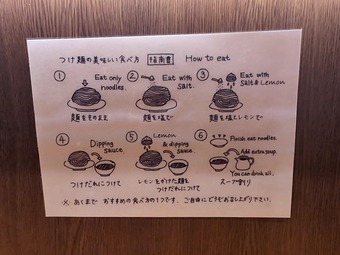 つけ麺の美味しい食べ方 指南書 How to eat
① Eat only
noodles.
麺をそのまま
② Eat with
salt.
麺を塩で
③ Eat with
Salt & Lemon
麺を塩とレモンで
④ Dipping
sauce
つけだれにつけて
⑤ Lemon
& dipping
sauce.
レモンをかけた麺を
つけだれにつけて
⑥ Finish eat noodles.
Add extra soup.
You can drink all.
スープ割り
※あくまで おすすめの食べ方の1つです。ご自由にどうぞお召し上がり下さい。